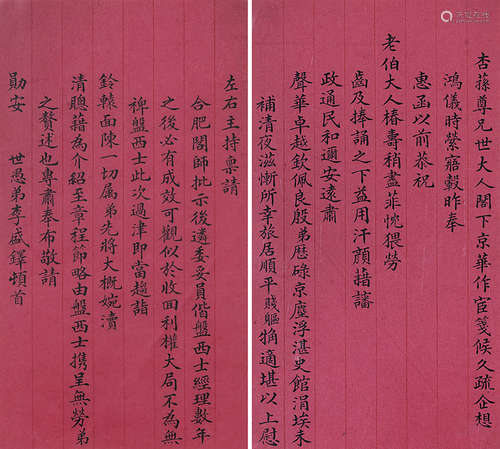 杏蓀尊兄世大人閣下京華作宦箋候久疏企想
鴻儀時縈寤轂昨奉
惠函以前恭祝
老伯大人椿壽稍盡菲忱猥勞
齒及捧誦之下益用汗顏藉諗
政通民和邇安遠肅
聲華卓越欽佩良殷弟歷碌京塵浮湛史館涓埃未
補清夜滋慚所幸旅居順平賤軀粗適堪以上慰
左右主持稟請
合肥閣師批示後遴委妥員偕盤西士經理數年
之後必有成效可觀似於收回利權大局不為無
裨盤西士此次過津即當趨詣
鈴轅面陳一切屬弟先將大概婉瀆
清聰藉為介紹至章程節略由盤西士攜呈無勞弟
之贅述也專肅奉布敬請
勛安 世愚弟李盛鐸頓首